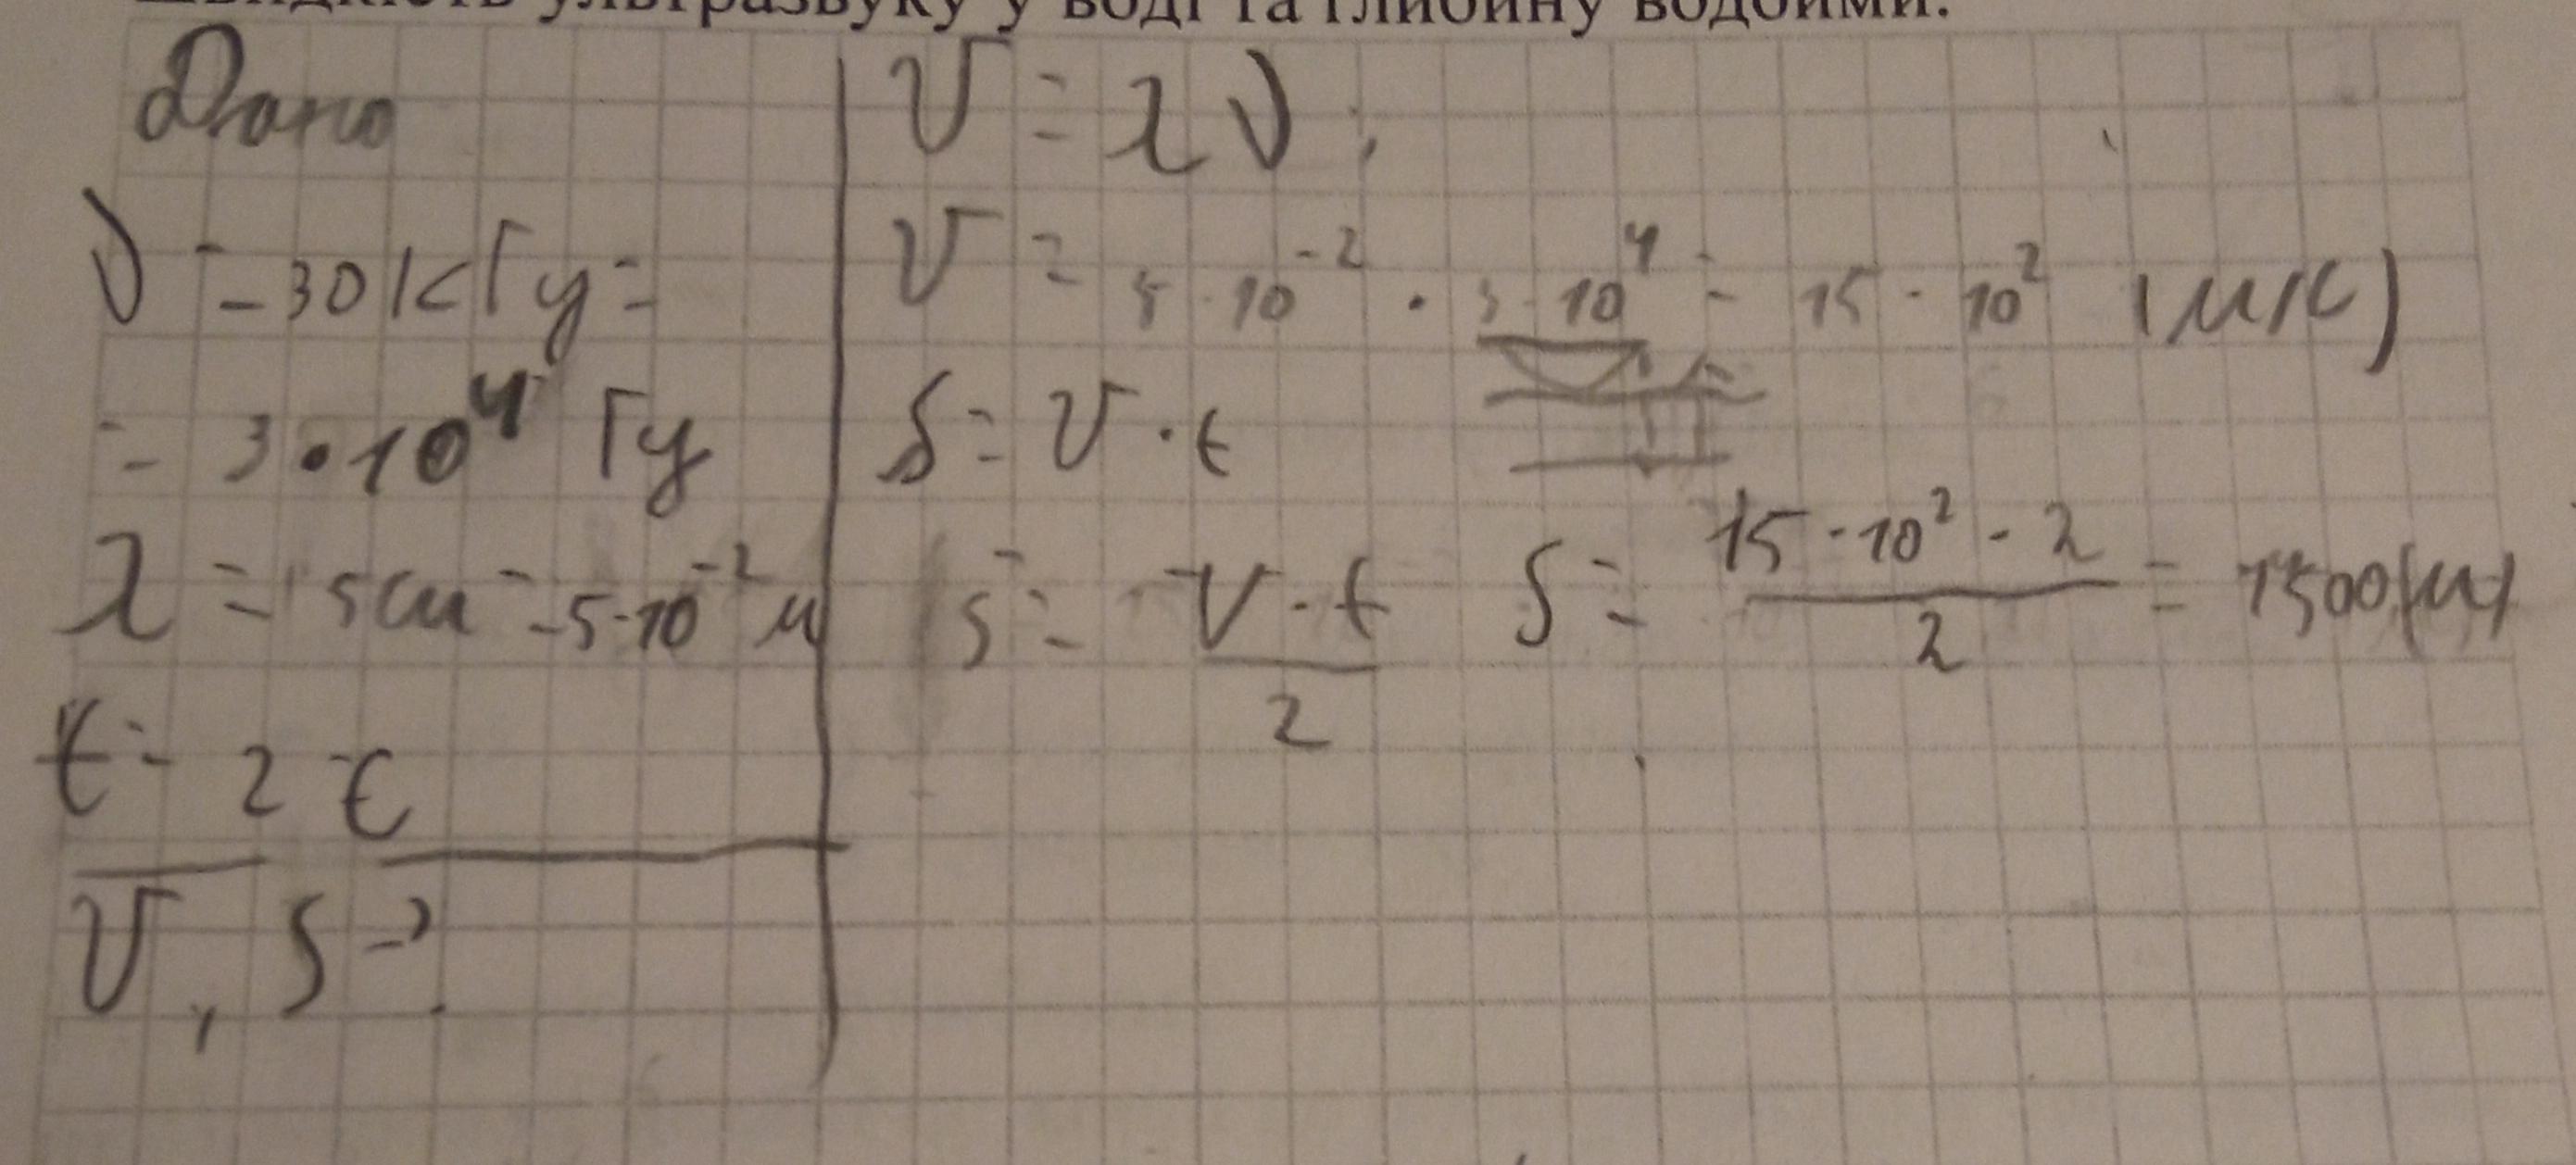 швидкість ультразвуку у воді та глибину водойми.
Дано
ν = 30 кГц =
= 3 · 10⁴ Гц
λ = 5 см = 5·10⁻² м
t = 2 c
V, S - ?
V = λ ν;
V = 5 · 10⁻² · 3 · 10⁴ = 15 · 10² (м/с)
S = V · t
S = V · t / 2   S = 15 · 10² · 2 / 2 = 1500 (м)